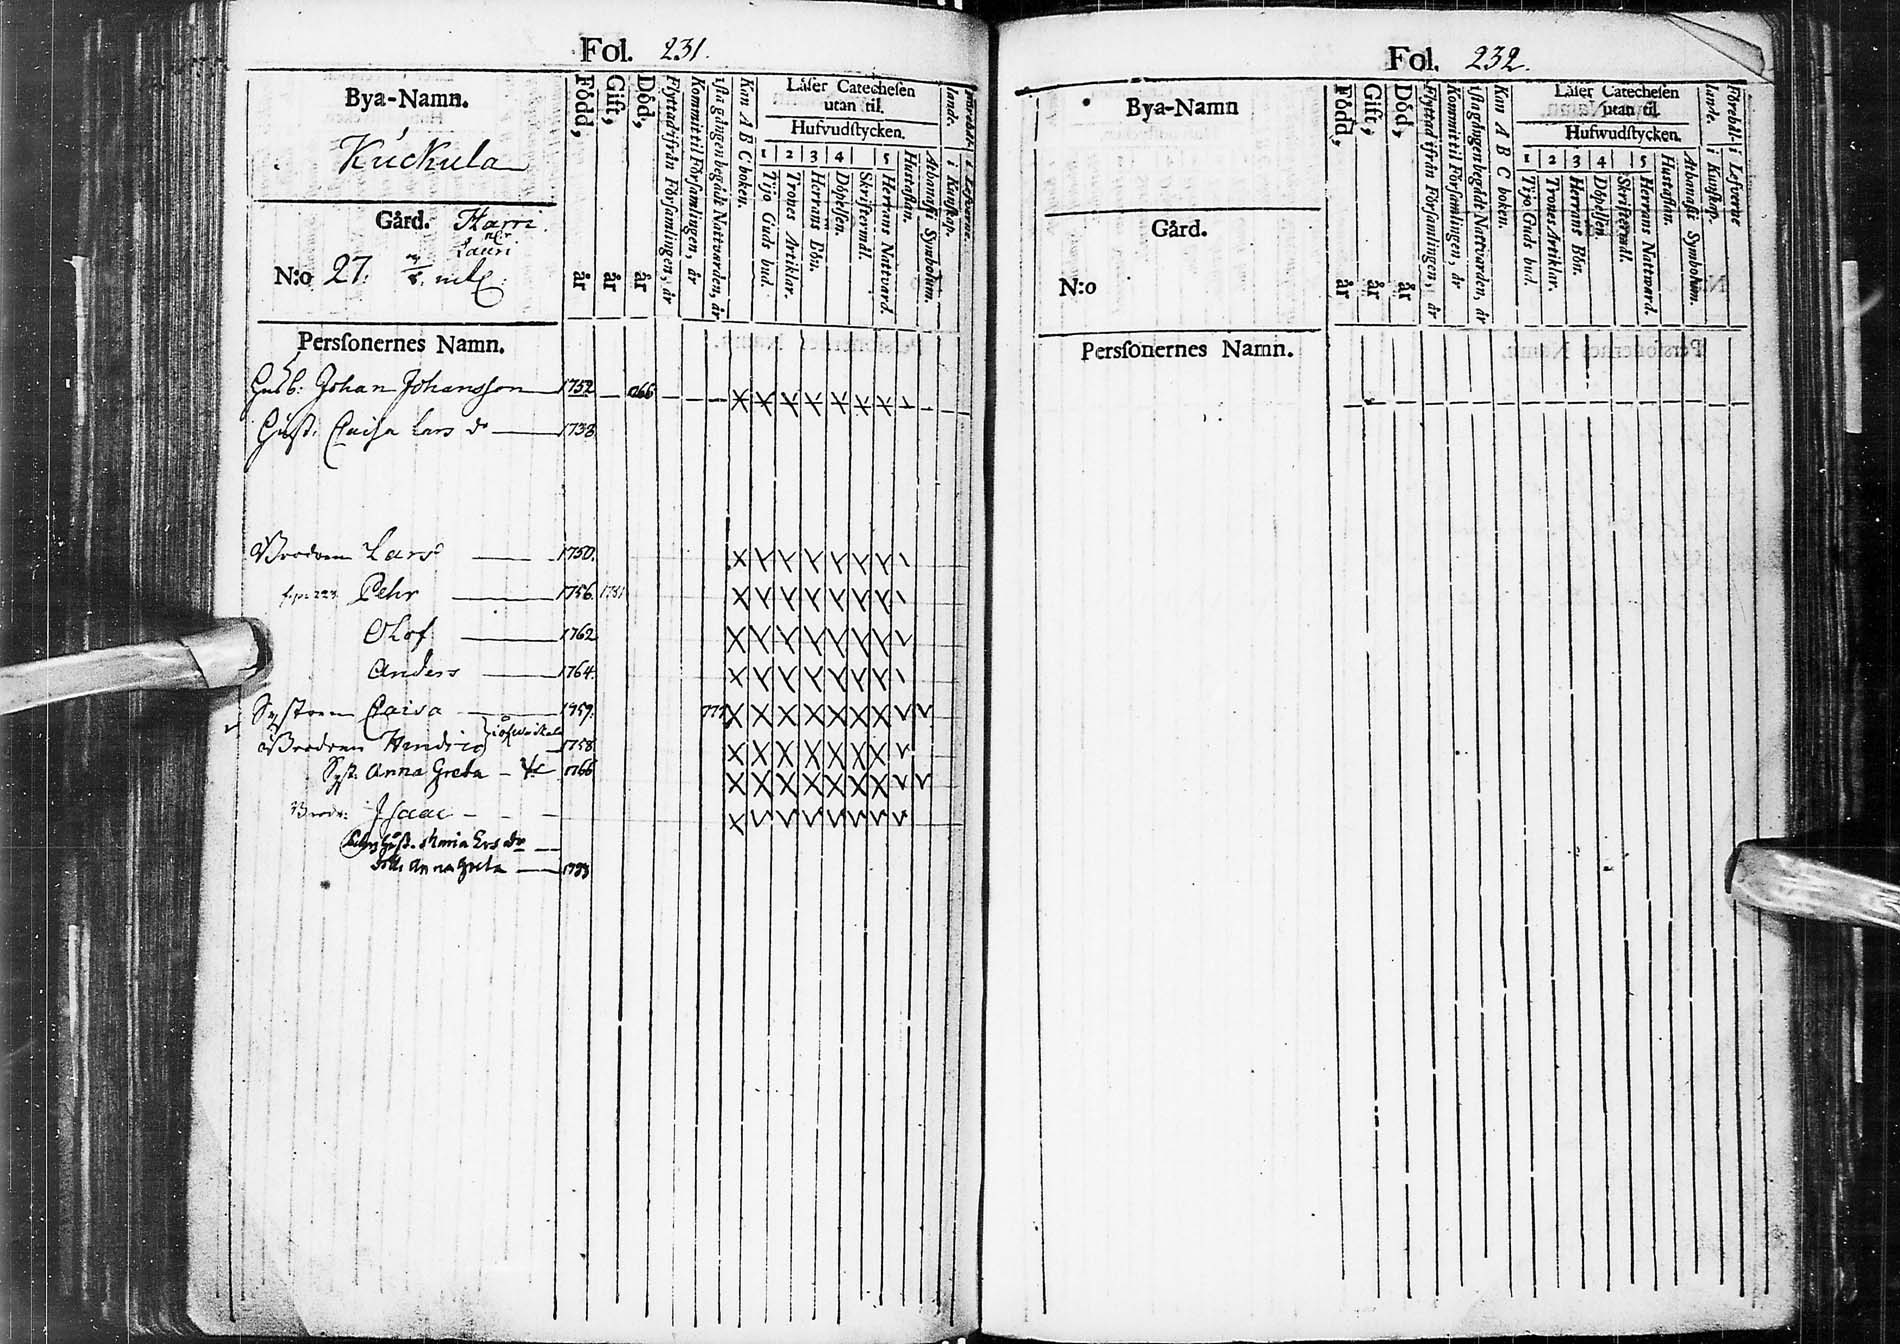 Fol. 231.
Bya-Namn.
Kuckula
Gård. Harri
Lauri
N:o 27.
Född, år
Gift, år
Död, år
Flyttad ifrån Församlingen, år
Kommit til Församlingen, år
ista gången begådt Nattvarden, år
Kan A B C boken.
Läser Catechesen
utan til.
Hufvudstycken.
1 2 3 4 5
Tijo Guds bud.
Trones Artiklar.
Herrans Bön.
Döpelsen.
Skriftermål.
Herrans Nattvard.
Hustaflan.
Athanasii Symbolum.
i Kunskap.
i Lefverne.
Personernes Namn.
Husb. Johan Johansson 1752 1766
Hust. Caisa Lars dr 1738
Brodren Lars 1750.
Pehr 1756. 1781
Olof 1762
Anders 1764.
Systren Caisa 1759.
Brodren Hendric 1758
Syst. Anna Greta 1766
Brodr: Isaac
Hust. Maria Ers dr
dott. Anna Greta 1783
Fol. 232.
Bya-Namn
Gård.
N:o
Född, år
Gift, år
Död, år
Flyttad ifrån Församlingen, år
Kommit til Församlingen, år
ista gången begådt Nattvarden, år
Kan A B C boken.
Läser Catechesen
utan til.
Hufwudstycken.
1 2 3 4 5
Tijo Guds bud.
Trones Artiklar.
Herrans Bön.
Döpelsen.
Skriftermål.
Herrans Nattvard.
Hustaflan.
Athanasii Symbolum.
Förehållande.
i Kunskap.
i Lefverne
Personernes Namn.